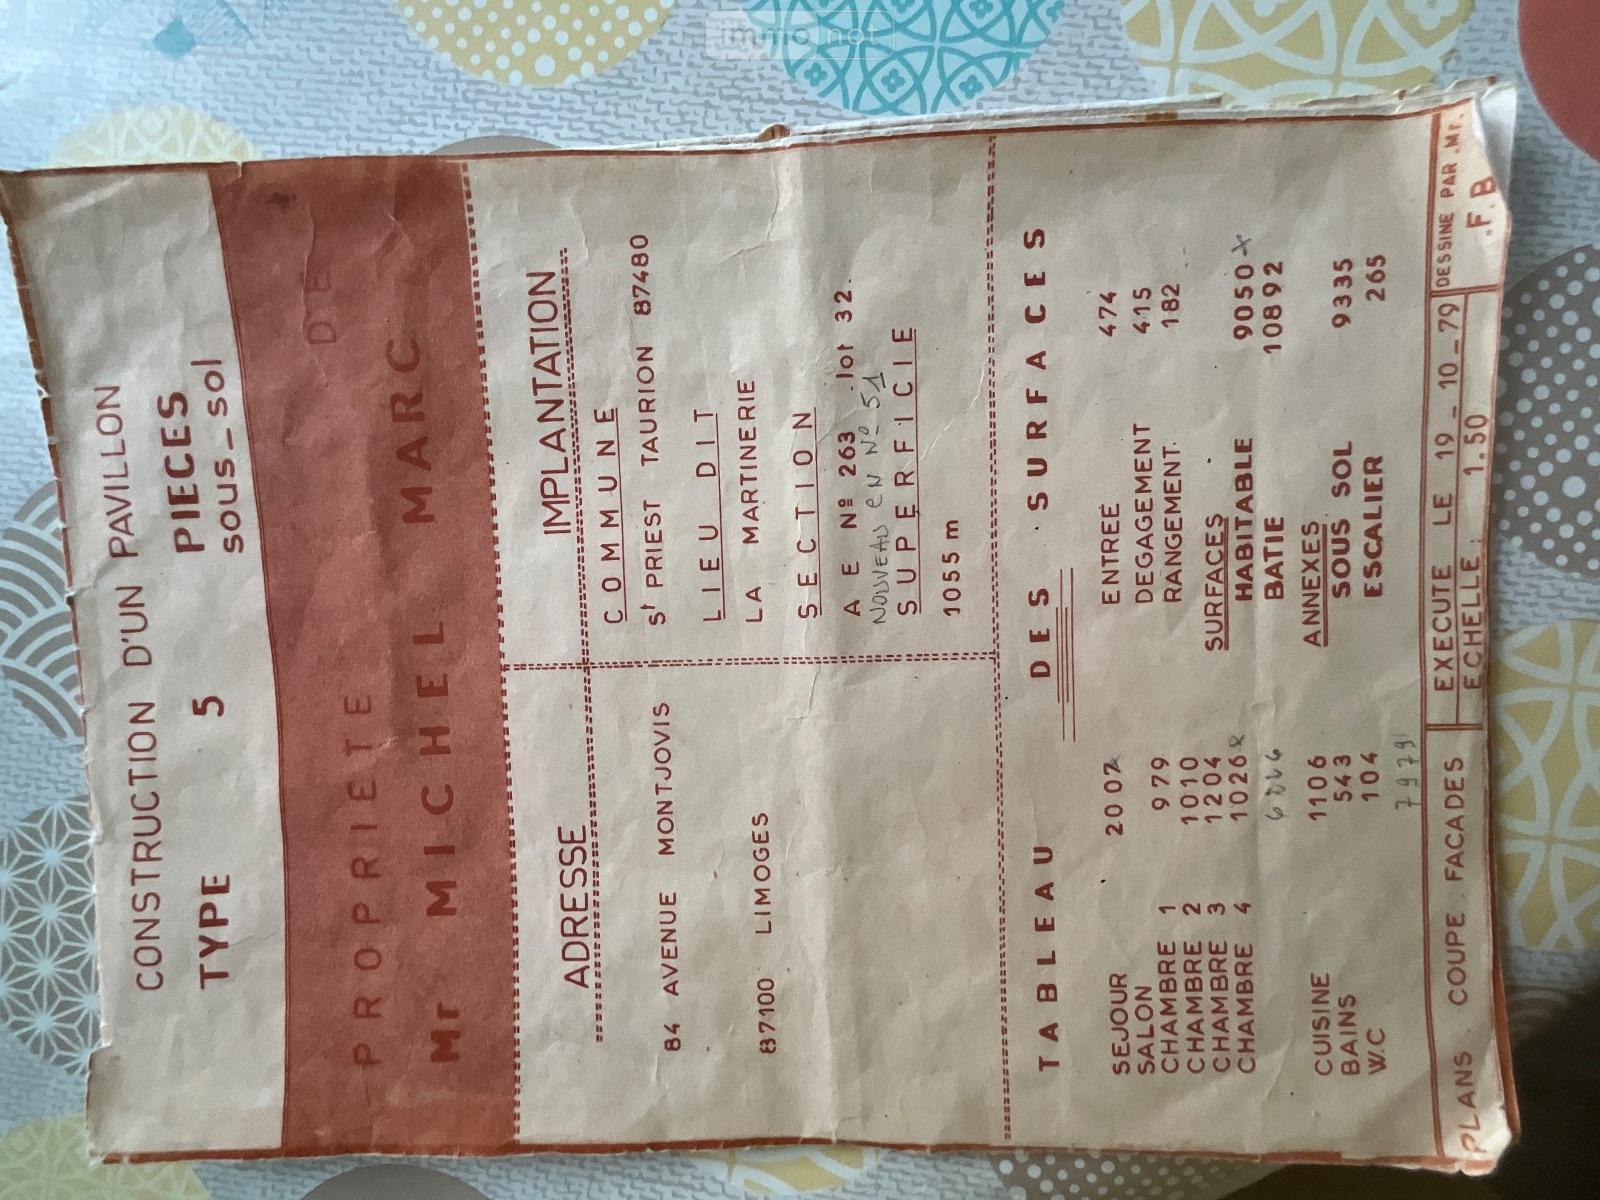 CONSTRUCTION D'UN PAVILLON
TYPE 5 PIECES
sous_sol
PROPRIETE DE
Mr MICHEL MARC
ADRESSE
84 AVENUE MONTJOVIS
87100 LIMOGES
IMPLANTATION
COMMUNE
St PRIEST TAURION 87480
LIEU DIT
LA MARTINERIE
SECTION
A E Nº 263 .lot 32.
NOUVEAU EN Nº 51
SUPERFICIE
1055 m
TABLEAU DES SURFACES
SEJOUR 2007
SALON
CHAMBRE 1 979
CHAMBRE 2 1010
CHAMBRE 3 1204
CHAMBRE 4 1026
CUISINE 1106
BAINS 543
W.C 104
7979
ENTREE 474
DEGAGEMENT 415
RANGEMENT. 182
SURFACES
HABITABLE 9050 x
BATIE 10892
ANNEXES
SOUS SOL 9335
ESCALIER 265
PLANS . COUPE . FACADES
EXECUTE LE 19_10_79
ECHELLE : 1.50
DESSINE PAR .Mr.
.F.B
immo not